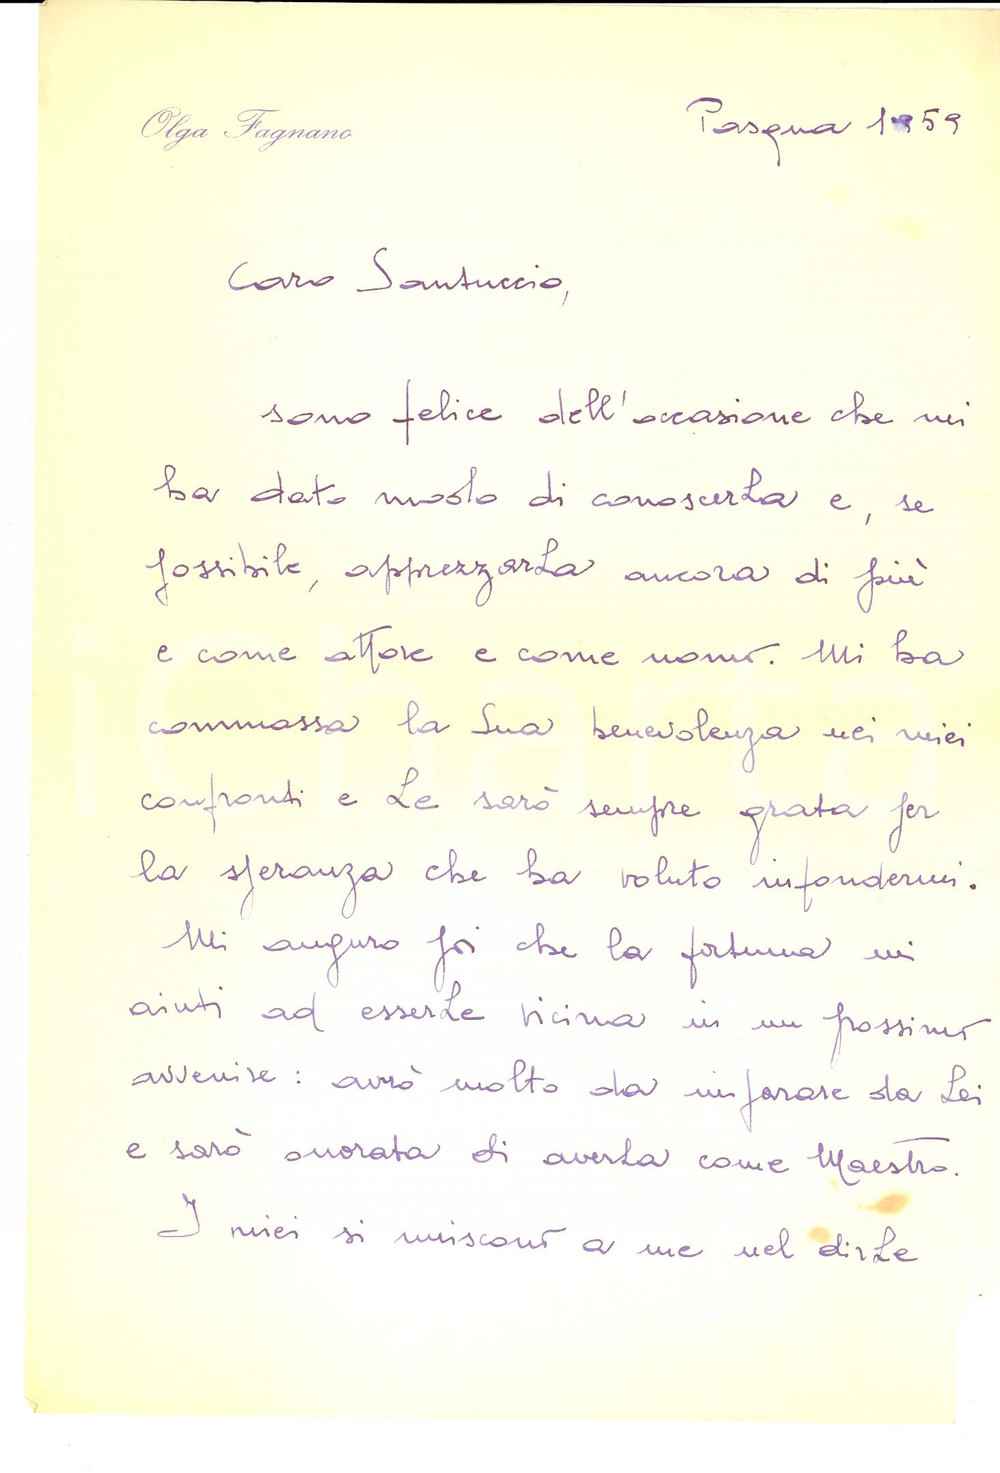 Olga Fagnano
Pasqua 1959
Caro Santuccio,
sono felice dell'occasione che mi
ha dato modo di conoscerLa e, se
possibile, apprezzarLa ancora di più
e come attore e come uomo. Mi ha
commossa la Sua benevolenza nei miei
confronti e Le sarò sempre grata per
la speranza che ha voluto infondermi.
Mi auguro poi che la fortuna mi
aiuti ad esserLe vicina in un prossimo
avvenire: avrò molto da imparare da Lei
e sarò onorata di averLa come Maestro.
I miei si uniscono a me nel dirLe
iCharta